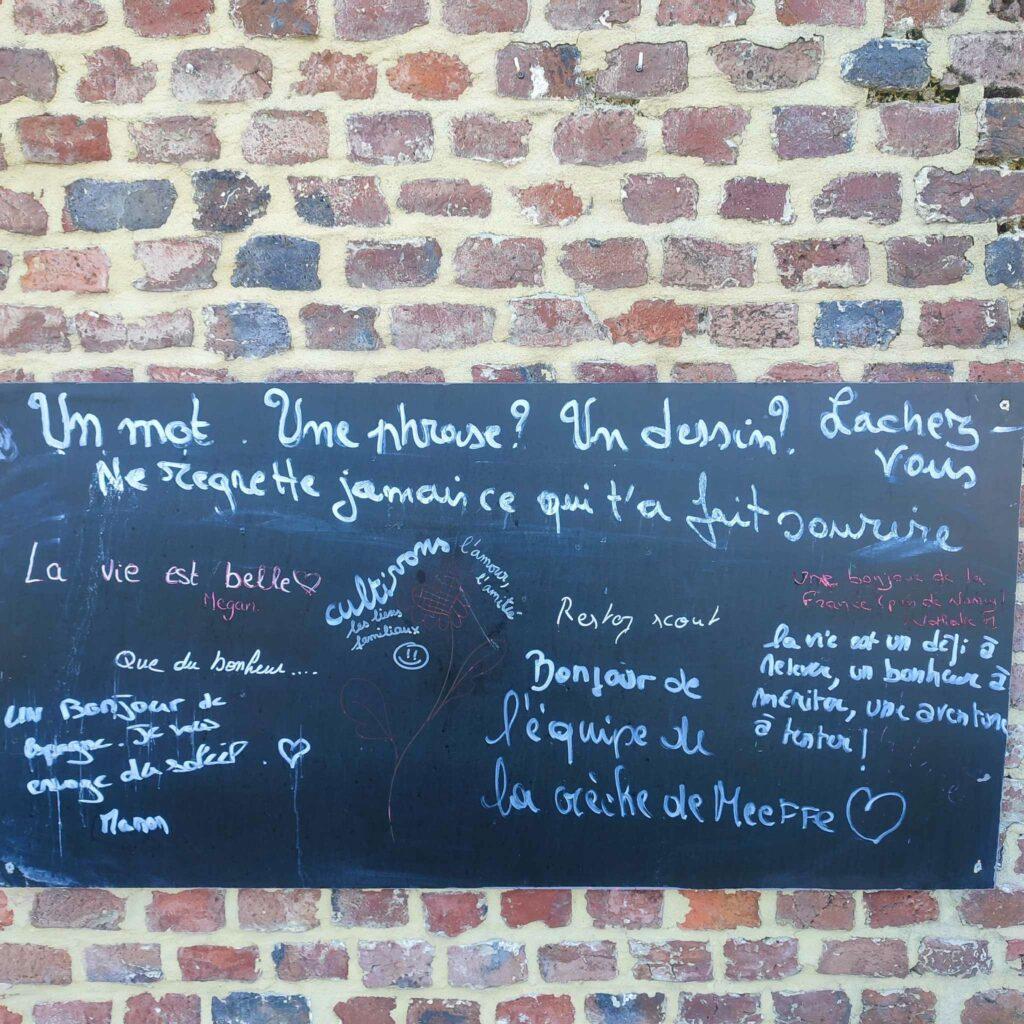 Un mot. Une phrase? Un dessin? Lachez-
vous
Ne regrette jamais ce qui t'a fait sourire
La vie est belle
Megan.
cultivons l'amour, l'amitié
les liens
familiaux
Restez scout
Une bonjour de la
France (près de Nancy)
Nathalie M.
la vie est un défi à
relever, un bonheur à
mériter, une aventure
à tenter!
Que du bonheur....
Un Bonjour de
espagne. Je vous
envoye du soleil.
Manon
Bonjour de
l'équipe de
la crèche de MeeFFe